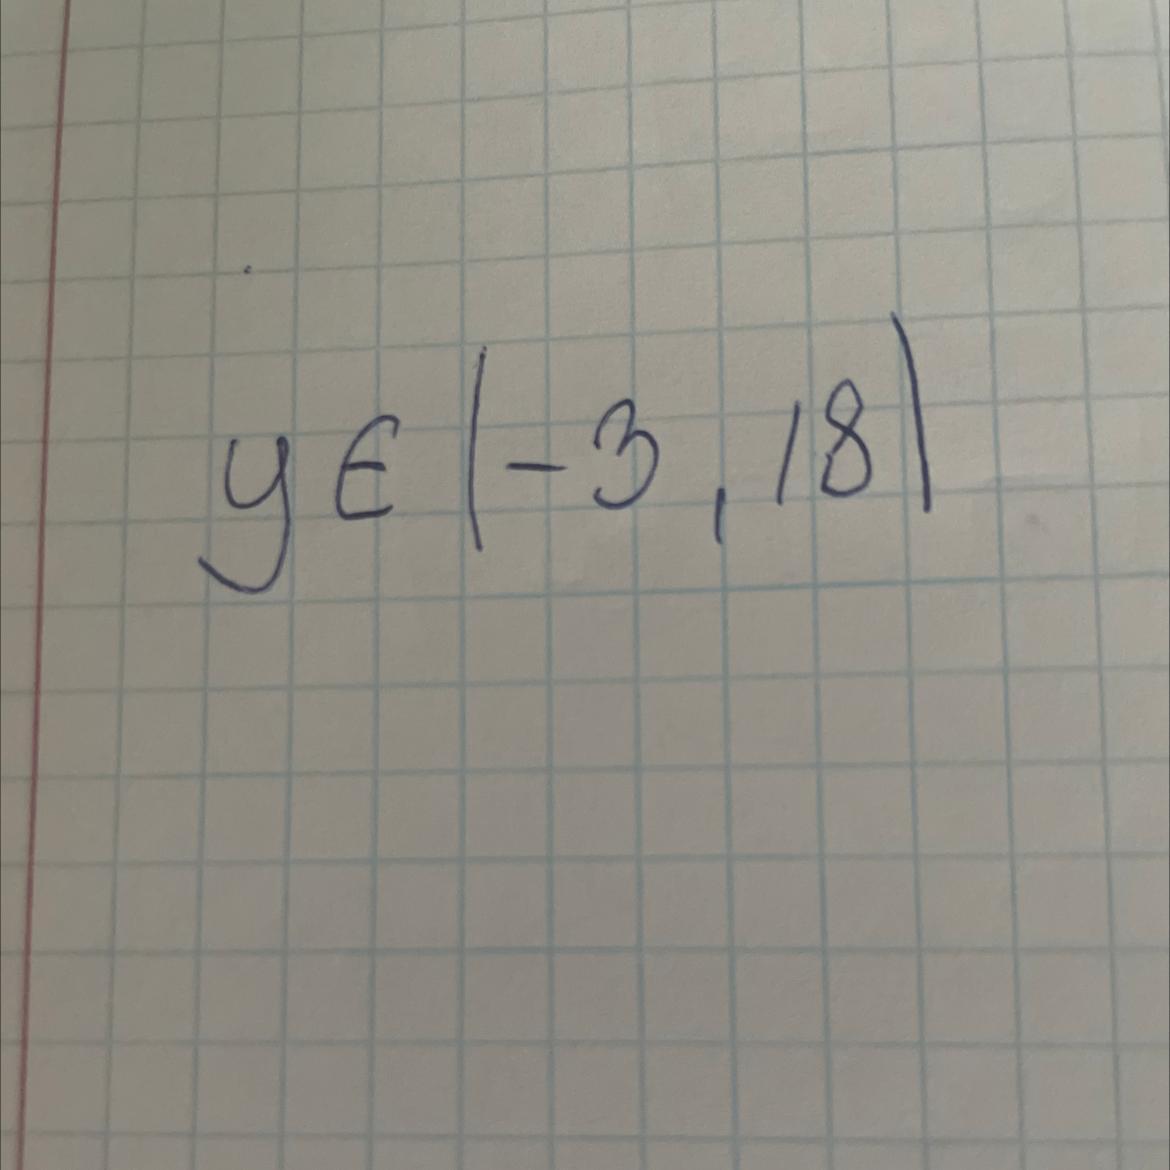 y ∈ (-3, 18)